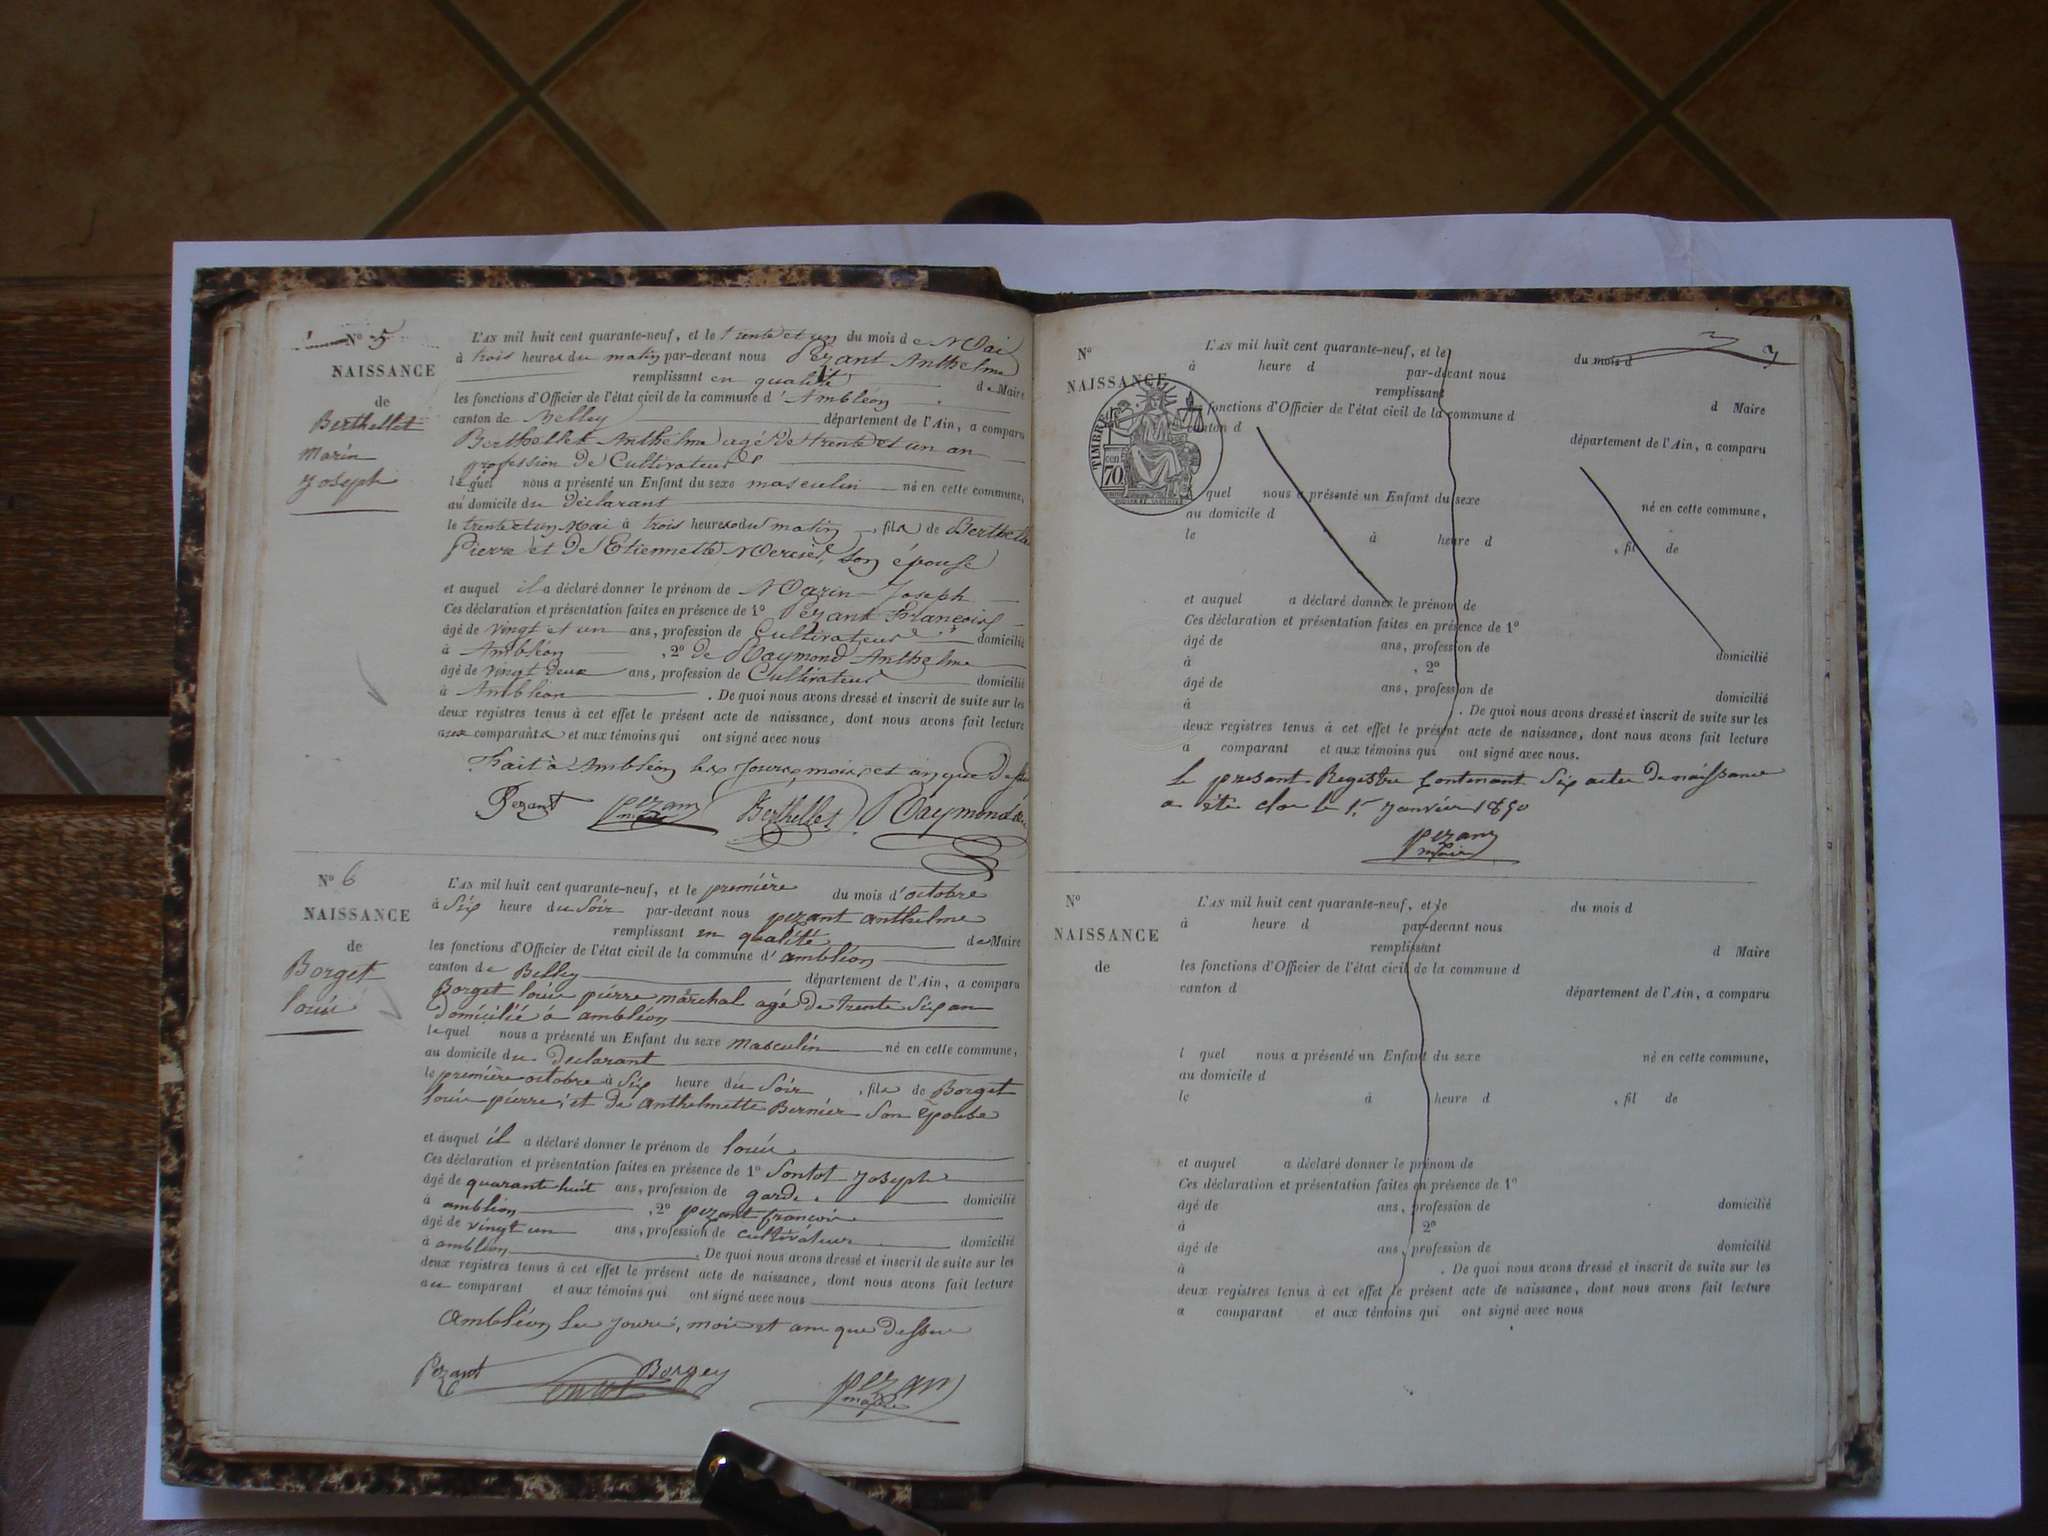 N° 5
NAISSANCE
de
Berthellet
Marin
Joseph
L'AN mil huit cent quarante-neuf, et le trente et un du mois de Mai
à trois heures du matin par-devant nous Pezant Anthelme
remplissant en qualité de Maire
les fonctions d'Officier de l'état civil de la commune d'Ambléon
canton de Belley département de l'Ain, a comparu
Berthellet Anthelme agé de trente et un an
profession de Cultivateur
lequel nous a présenté un Enfant du sexe masculin né en cette commune,
au domicile du déclarant
le trente et un Mai à trois heures du matin, fils de Berthellet
Pierre et de Etiennette Mercier, son épouse
et auquel il a déclaré donner le prénom de Marin Joseph
Ces déclaration et présentation faites en présence de 1° Pezant François
âgé de vingt et un ans, profession de Cultivateur domicilié
à Ambléon, 2° de Raymond Anthelme
âgé de vingt deux ans, profession de Cultivateur domicilié
à Ambléon. De quoi nous avons dressé et inscrit de suite sur les
deux registres tenus à cet effet le présent acte de naissance, dont nous avons fait lecture
aux comparants et aux témoins qui ont signé avec nous
Fait à Ambléon les jours, mois et an que dessus
Pezant Pezant maire Berthellet Raymond
N° 6
NAISSANCE
de
Borget
louis
L'AN mil huit cent quarante-neuf, et le première du mois d'octobre
à six heure du soir par-devant nous pezant anthelme
remplissant en qualité de Maire
les fonctions d'Officier de l'état civil de la commune d'ambléon
canton de Belley département de l'Ain, a comparu
Borget louis pierre maréchal agé de trente six an
domicilié à ambléon
lequel nous a présenté un Enfant du sexe masculin né en cette commune,
au domicile du declarant
le première octobre à six heure du soir, fils de Borget
louis pierre, et de anthelmette Bernier son épouse
et auquel il a déclaré donner le prénom de louis
Ces déclaration et présentation faites en présence de 1° Sontot Joseph
âgé de quarant huit ans, profession de garde domicilié
à ambléon, 2° pezant françois
âgé de vingt un ans, profession de cultivateur domicilié
à ambléon. De quoi nous avons dressé et inscrit de suite sur les
deux registres tenus à cet effet le présent acte de naissance, dont nous avons fait lecture
au comparant et aux témoins qui ont signé avec nous
Ambléon les jours, mois et an que dessus
Pezant Borgey pezant maire
3
N°
NAISSANCE
TIMBRE
70
L'AN mil huit cent quarante-neuf, et le du mois d
à heure d par-devant nous
remplissant d Maire
fonctions d'Officier de l'état civil de la commune d
canton d département de l'Ain, a comparu
quel nous a présenté un Enfant du sexe né en cette commune,
au domicile d
le à heure d , fil de
et auquel a déclaré donner le prénom de
Ces déclaration et présentation faites en présence de 1°
âgé de ans, profession de domicilié
à , 2°
âgé de ans, profession de domicilié
à . De quoi nous avons dressé et inscrit de suite sur les
deux registres tenus à cet effet le présent acte de naissance, dont nous avons fait lecture
a comparant et aux témoins qui ont signé avec nous.
le present Registre Contenant Six actes de naissance
a été clos le 1er janvier 1850
pezant
maire
N°
NAISSANCE
de
L'AN mil huit cent quarante-neuf, et le du mois d
à heure d par-devant nous
remplissant d Maire
les fonctions d'Officier de l'état civil de la commune d
canton d département de l'Ain, a comparu
l quel nous a présenté un Enfant du sexe né en cette commune,
au domicile d
le à heure d , fil de
et auquel a déclaré donner le prénom de
Ces déclaration et présentation faites en présence de 1°
âgé de ans, profession de domicilié
à 2°
âgé de ans, profession de domicilié
à . De quoi nous avons dressé et inscrit de suite sur les
deux registres tenus à cet effet le présent acte de naissance, dont nous avons fait lecture
a comparant et aux témoins qui ont signé avec nous